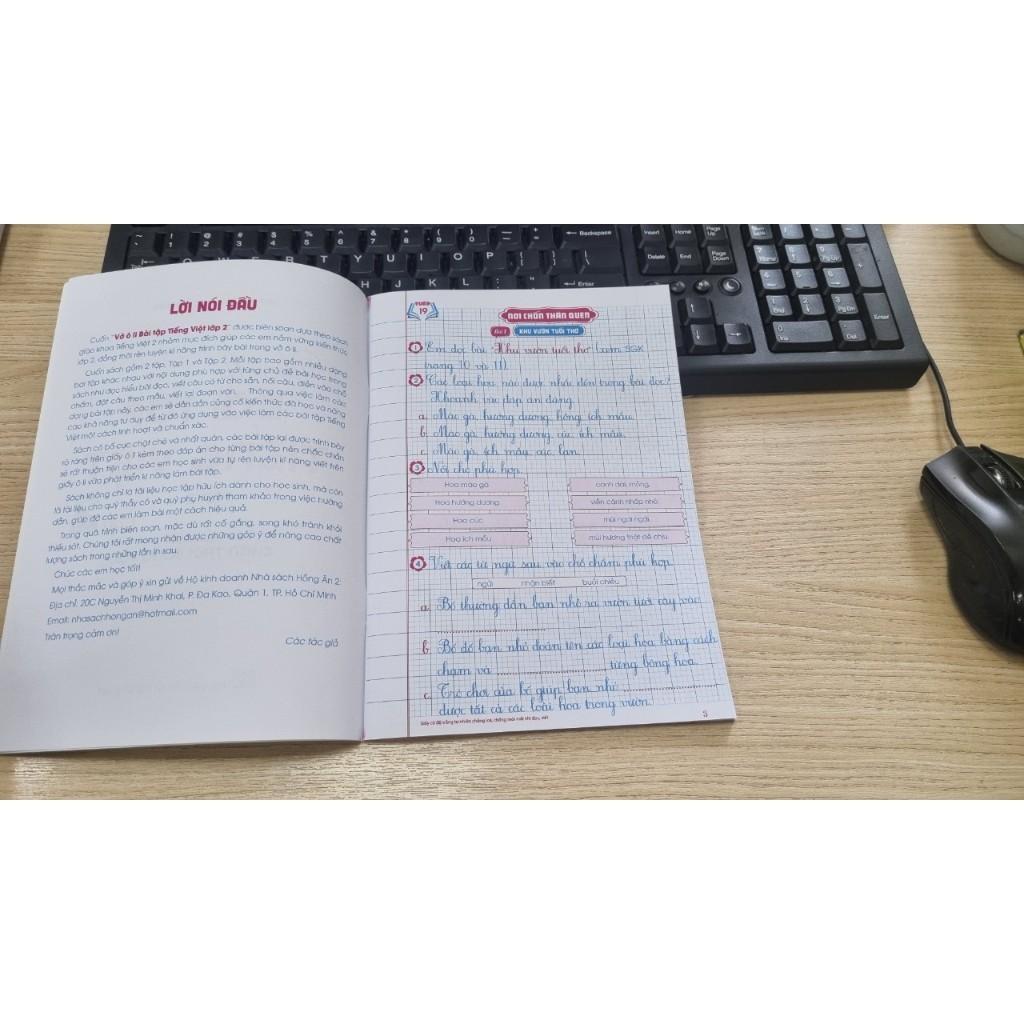 LỜI NÓI ĐẦU
Cuốn "Vở ô li Bài tập Tiếng Việt lớp 2" được biên soạn dựa theo sách
giáo khoa Tiếng Việt 2 nhằm mục đích giúp các em nắm vững kiến thức
lớp 2, đồng thời rèn luyện kĩ năng trình bày bài trong vở ô li.
Cuốn sách gồm 2 tập: Tập 1 và Tập 2. Mỗi tập bao gồm nhiều dạng
bài tập khác nhau với nội dung phù hợp với từng chủ đề bài học trong
sách như đọc hiểu bài đọc, viết câu có từ cho sẵn, nối câu, điền vào chỗ
chấm, đặt câu theo mẫu, viết lại đoạn văn,... Thông qua việc làm các
dạng bài tập này, các em sẽ dần dần củng cố kiến thức đã học và nâng
cao khả năng tư duy để từ đó ứng dụng vào việc làm các bài tập Tiếng
Việt một cách linh hoạt và chuẩn xác.
Sách có bố cục chặt chẽ và nhất quán, các bài tập lại được trình bày
rõ ràng trên giấy ô li kèm theo đáp án cho từng bài tập nên chắc chắn
sẽ rất thuận tiện cho các em học sinh vừa tự rèn luyện kĩ năng viết trên
giấy ô li vừa phát triển kĩ năng làm bài tập.
Sách không chỉ là tài liệu học tập hữu ích dành cho học sinh, mà còn
là tài liệu cho quý thầy cô và quý phụ huynh tham khảo trong việc hướng
dẫn, giúp đỡ các em làm bài một cách hiệu quả.
Trong quá trình biên soạn, mặc dù rất cố gắng, song khó tránh khỏi
thiếu sót. Chúng tôi rất mong nhận được những góp ý để nâng cao chất
lượng sách trong những lần in sau.
Chúc các em học tốt!
Mọi thắc mắc và góp ý xin gửi về Hộ kinh doanh Nhà sách Hồng Ân 2:
Địa chỉ: 20C Nguyễn Thị Minh Khai, P. Đa Kao, Quận 1, TP. Hồ Chí Minh
Email: nhasachhongan@hotmail.com
Trân trọng cảm ơn!
Các tác giả
TUẦN 19
NƠI CHỐN THÂN QUEN
Bài 1 KHU VƯỜN TUỔI THƠ
1 Em đọc bài "Khu vườn tuổi thơ" (xem SGK
trang 10 và 11).
2 Các loài hoa nào được nhắc đến trong bài đọc?
Khoanh vào đáp án đúng.
a. Mào gà, hướng dương, hồng, ích mẫu.
b. Mào gà, hướng dương, cúc, ích mẫu.
c. Mào gà, ích mẫu, cúc, lan.
3 Nối cho phù hợp.
Hoa mào gà cánh dài, mỏng.
Hoa hướng dương viền cánh nhấp nhô.
Hoa cúc mùi ngai ngái.
Hoa ích mẫu mùi hương thật dễ chịu.
4 Viết các từ ngữ sau vào chỗ chấm phù hợp.
ngửi nhận biết buổi chiều
a. Bố thường dẫn bạn nhỏ ra vườn tưới cây vào
b. Bố đố bạn nhỏ đoán tên các loài hoa bằng cách
chạm và từng bông hoa.
c. Trò chơi của bố giúp bạn nhỏ
được tất cả các loài hoa trong vườn.
5
Backspace
Insert Home Page Up
Delete End Page Down
Q W E R T Y U I O P
Enter
H J K L
Enter
Ins Del